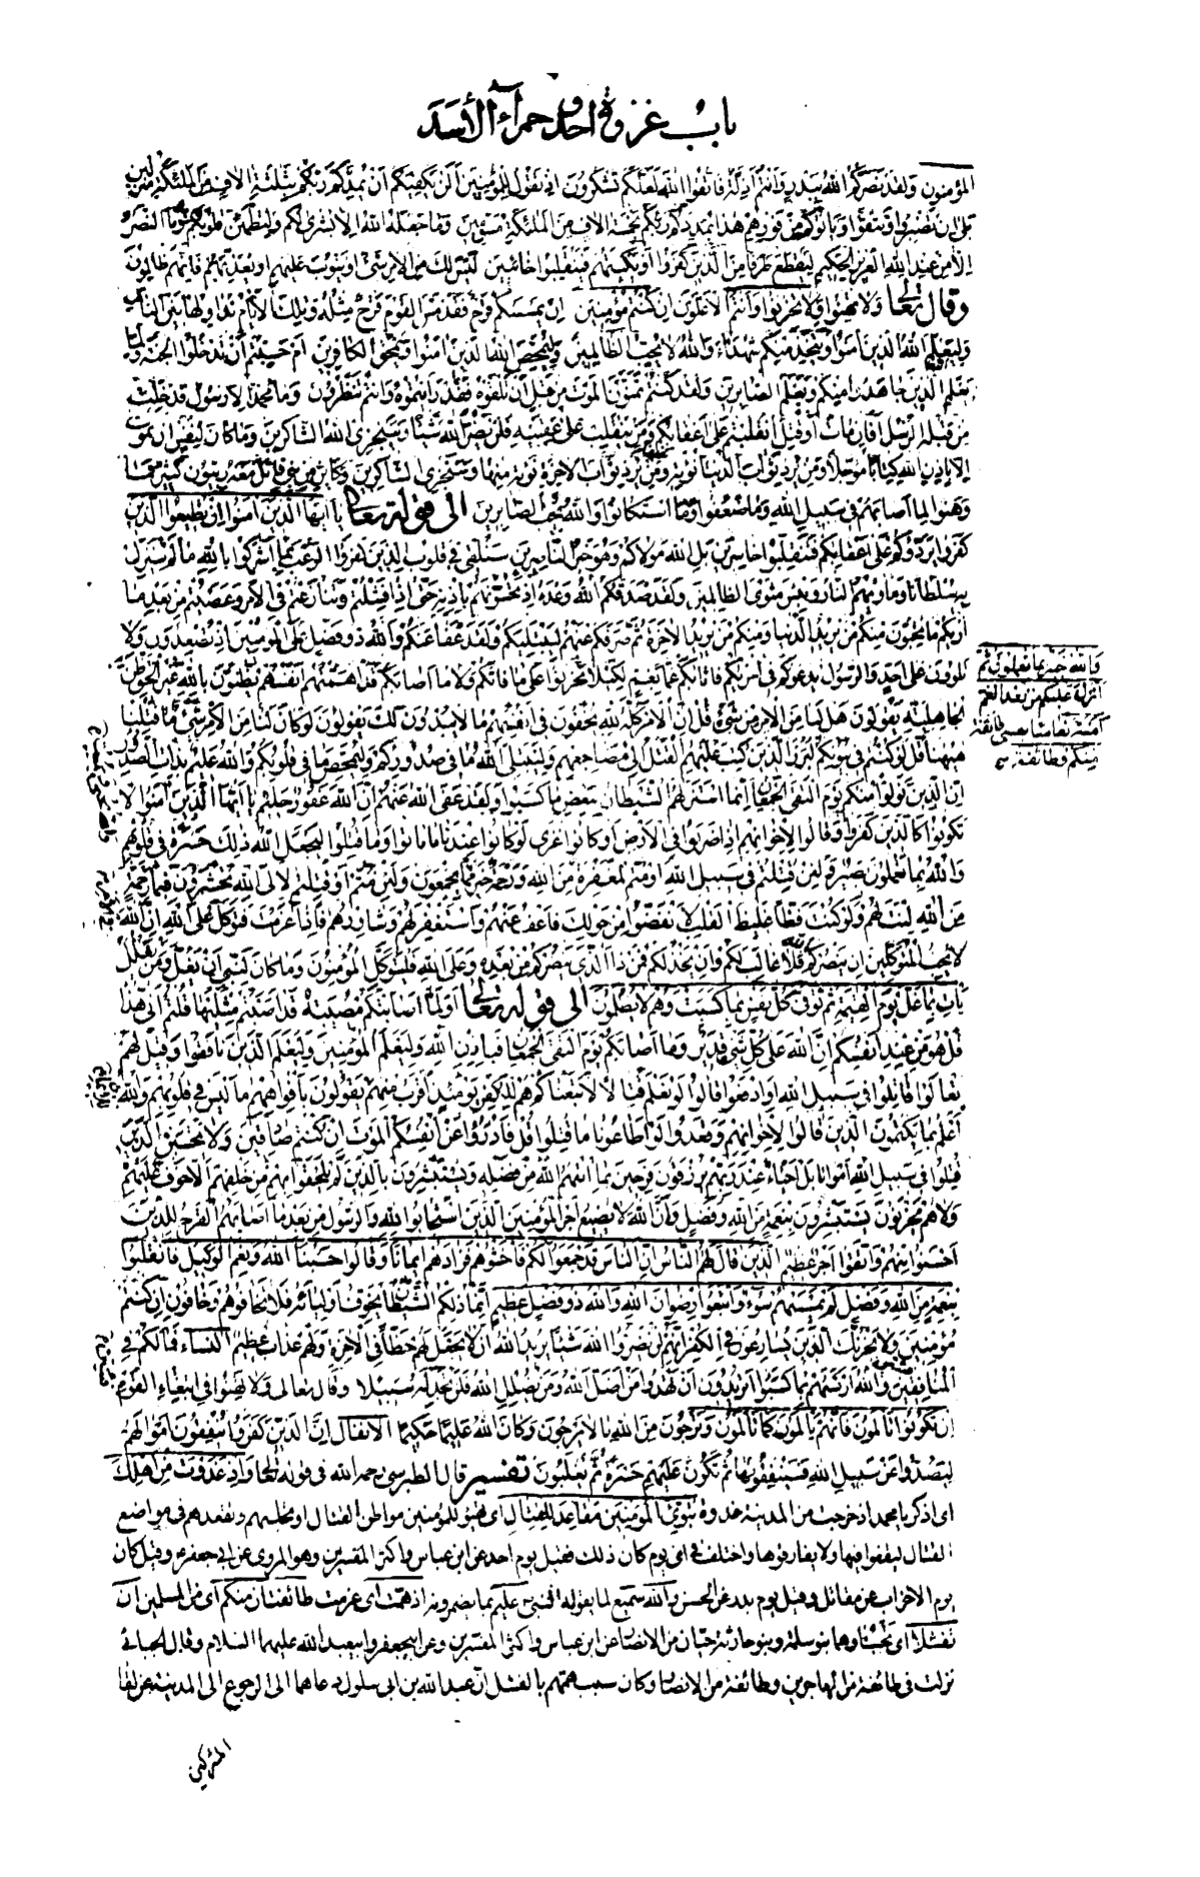 باب غزوة احد و حمرآء الأسد
المؤمنون ولقد نصركم الله ببدر وانتم اذلة فاتقوا الله لعلكم تشكرون اذ تقول للمؤمنين الن يكفيكم ان يمدكم ربكم بثلثة الاف من الملئكة منزلين
بلى ان تصبروا وتتقوا وياتوكم من فورهم هذا يمددكم ربكم بخمسة الاف من الملئكة مسومين وما جعله الله الا بشرى لكم ولتطمئن قلوبكم به وما النصر
الا من عند الله العزيز الحكيم ليقطع طرفا من الذين كفروا او يكبتهم فينقلبوا خائبين ليس لك من الامر شئ او يتوب عليهم او يعذبهم فانهم ظالمون
وقال تعالى ولا تهنوا ولا تحزنوا وانتم الاعلون ان كنتم مؤمنين ان يمسسكم قرح فقد مس القوم قرح مثله وتلك الايام نداولها بين الناس
وليعلم الله الذين امنوا ويتخذ منكم شهداء والله لا يحب الظالمين وليمحص الله الذين امنوا ويمحق الكافرين ام حسبتم ان تدخلوا الجنة ولما
يعلم الذين جاهدوا منكم ويعلم الصابرين ولقد كنتم تمنون الموت من قبل ان تلقوه فقد رايتموه وانتم تنظرون وما محمد الا رسول قد خلت
من قبله الرسل افان مات او قتل انقلبتم على اعقابكم ومن ينقلب على عقبيه فلن يضر الله شيئا وسيجزي الله الشاكرين وما كان لنفس ان تموت
الا باذن الله كتابا مؤجلا ومن يرد ثواب الدنيا نؤته منها ومن يرد ثواب الاخرة نؤته منها وسنجزي الشاكرين وكاين من نبي قاتل معه ربيون كثير فما
وهنوا لما اصابهم في سبيل الله وما ضعفوا وما استكانوا والله يحب الصابرين الى قوله تعالى يا ايها الذين امنوا ان تطيعوا الذين
كفروا يردوكم على اعقابكم فتنقلبوا خاسرين بل الله مولاكم وهو خير الناصرين سنلقي في قلوب الذين كفروا الرعب بما اشركوا بالله ما لم ينزل
به سلطانا وماويهم النار وبئس مثوى الظالمين ولقد صدقكم الله وعده اذ تحسونهم باذنه حتى اذا فشلتم وتنازعتم في الامر وعصيتم من بعد ما
اريكم ما تحبون منكم من يريد الدنيا ومنكم من يريد الاخرة ثم صرفكم عنهم ليبتليكم ولقد عفا عنكم والله ذو فضل على المؤمنين اذ تصعدون ولا
تلوون على احد والرسول يدعوكم في اخريكم فاثابكم غما بغم لكيلا تحزنوا على ما فاتكم ولا ما اصابكم قد اهمتهم انفسهم يظنون بالله غير الحق ظن
والله خبير بما تعملون ثم
انزل عليكم من بعد الغم
امنة نعاسا يغشى طائفة
منكم وطائفة
الجاهلية يقولون هل لنا من الامر من شئ قل ان الامر كله لله يخفون في انفسهم ما لا يبدون لك يقولون لو كان لنا من الامر شئ ما قتلنا
ههنا قل لو كنتم في بيوتكم لبرز الذين كتب عليهم القتل الى مضاجعهم وليبتلي الله ما في صدوركم وليمحص ما في قلوبكم والله عليم بذات الصدور
ان الذين تولوا منكم يوم التقى الجمعان انما استزلهم الشيطان ببعض ما كسبوا ولقد عفى الله عنهم ان الله غفور حليم يا ايها الذين امنوا لا
تكونوا كالذين كفروا وقالوا لاخوانهم اذا ضربوا في الارض او كانوا غزى لو كانوا عندنا ما ماتوا وما قتلوا ليجعل الله ذلك حسرة في قلوبهم
والله بما تعملون بصير ولئن قتلتم في سبيل الله او متم لمغفرة من الله ورحمة خير مما يجمعون ولئن متم او قتلتم لالى الله تحشرون فبما رحمة
من الله لنت لهم ولو كنت فظا غليظ القلب لانفضوا من حولك فاعف عنهم واستغفر لهم وشاورهم فاذا عزمت فتوكل على الله ان الله
لا يحب المتوكلين ان ينصركم الله فلا غالب لكم وان يخذلكم فمن ذا الذي ينصركم من بعده وعلى الله فليتوكل المؤمنون وما كان لنبي ان يغل ومن يغلل
يات بما غل يوم القيمة ثم توفى كل نفس بما كسبت وهم لا يظلمون الى قوله تعالى او لما اصابتكم مصيبة قد اصبتم مثليها قلتم انى هذا
قل هو من عند انفسكم ان الله على كل شئ قدير وما اصابكم يوم التقى الجمعان فباذن الله وليعلم المؤمنين وليعلم الذين نافقوا وقيل لهم
تعالوا قاتلوا في سبيل الله او ادفعوا قالوا لو نعلم قتالا لاتبعناكم هم للكفر يومئذ اقرب منهم يقولون بافواههم ما ليس في قلوبهم والله
اعلم بما يكتمون الذين قالوا لاخوانهم وقعدوا لو اطاعونا ما قتلوا قل فادرؤا عن انفسكم الموت ان كنتم صادقين ولا تحسبن الذين
قتلوا في سبيل الله امواتا بل احياء عند ربهم يرزقون فرحين بما اتيهم الله من فضله ويستبشرون بالذين لم يلحقوا بهم من خلفهم الا خوف عليهم
ولا هم يحزنون يستبشرون بنعمة من الله وفضل وان الله لا يضيع اجر المؤمنين الذين استجابوا لله والرسول من بعد ما اصابهم القرح للذين
احسنوا منهم واتقوا اجر عظيم الذين قال لهم الناس ان الناس قد جمعوا لكم فاخشوهم فزادهم ايمانا وقالوا حسبنا الله ونعم الوكيل فانقلبوا
بنعمة من الله وفضل لم يمسسهم سوء واتبعوا رضوان الله والله ذو فضل عظيم انما ذلكم الشيطان يخوف اوليائه فلا تخافوهم وخافون ان كنتم
مؤمنين ولا يحزنك الذين يسارعون في الكفر انهم لن يضروا الله شيئا يريد الله ان لا يجعل لهم حظا في الاخرة ولهم عذاب عظيم النساء فما لكم في
المنافقين فئتين والله اركسهم بما كسبوا اتريدون ان تهدوا من اضل الله ومن يضلل الله فلن تجد له سبيلا وقال تعالى ولا تهنوا في ابتغاء القوم
ان تكونوا تألمون فانهم يألمون كما تألمون وترجون من الله ما لا يرجون وكان الله عليما حكيما الانفال ان الذين كفروا ينفقون اموالهم
ليصدوا عن سبيل الله فسينفقونها ثم تكون عليهم حسرة ثم يغلبون تفسير قال الطبرسي رحمه الله في قوله تعالى واذ غدوت من اهلك
اى اذكر يا محمد اذ خرجت من المدينة غدوة تبوئ المؤمنين مقاعد للقتال اى تهيؤ للمؤمنين مواطن القتال او تجلسهم وتقعدهم في مواضع
القتال ليقفوا فيها ولا يفارقوها واختلف في اى يوم كان ذلك فقيل يوم احد عن ابن عباس واكثر المفسرين وهو المروى عن ابي جعفر ع وقيل كان
يوم الاحزاب عن مقاتل وقيل يوم بدر عن الحسن والله سميع لما يقوله النبي ص عليم بما يضمرونه اذ همت اى عزمت طائفتان منكم اى من المسلمين ان
تفشلا اى تجبنا وهما بنو سلمة وبنو حارثة حيان من الانصار عن ابن عباس واكثر المفسرين وعن ابيجعفر وابيعبد الله عليهما السلام وقال الجبائي
نزلت في طائفة من المهاجرين وطائفة من الانصار وكان سبب همهم بالفشل ان عبد الله بن ابي سلول دعاهما الى الرجوع الى المدينة عن لقاء
المشركين